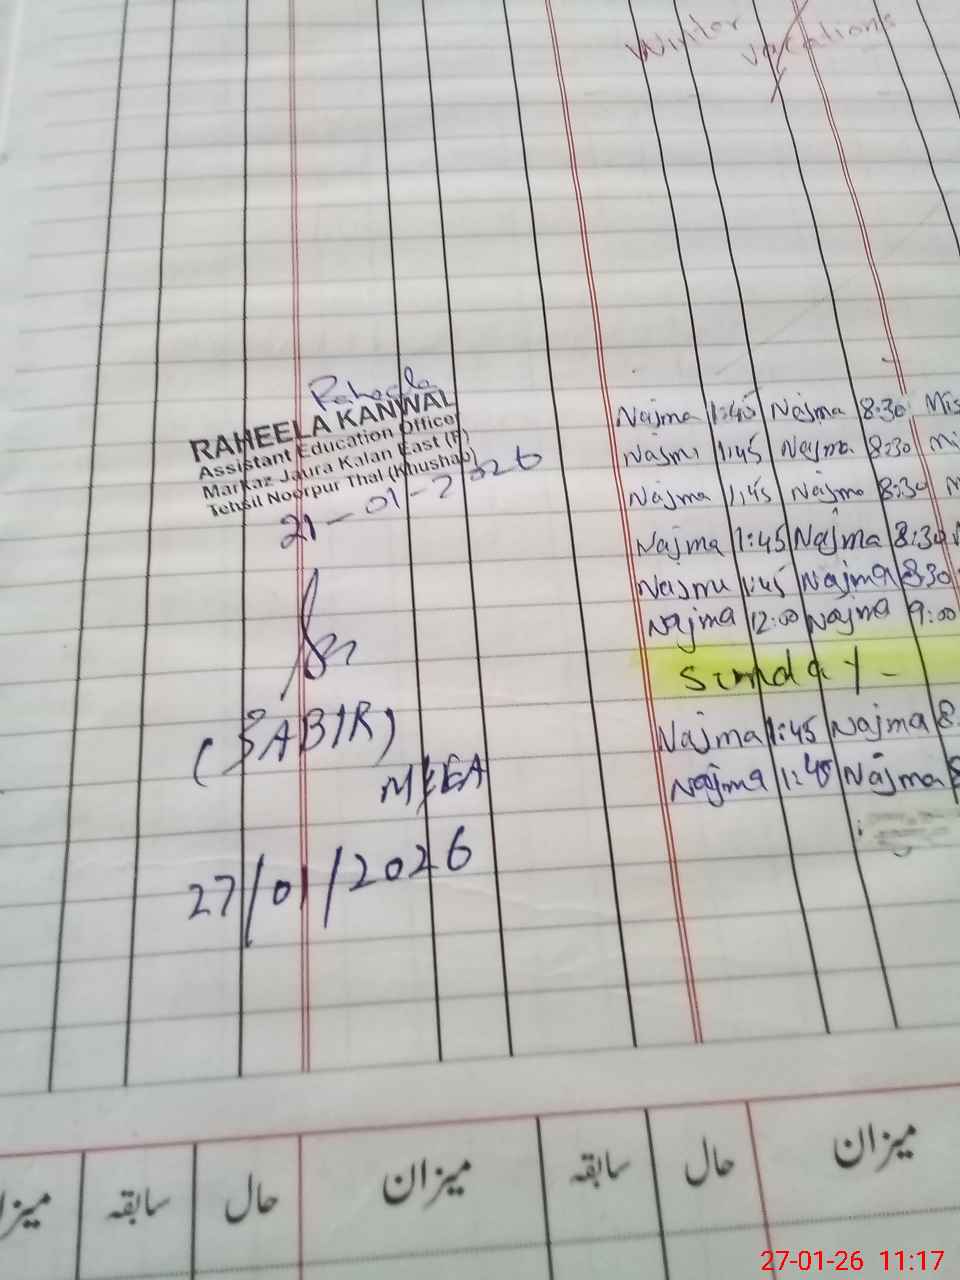 Winter vacations
Raheela
RAHEELA KANWAL
Assistant Education Officer
Markaz Jaura Kalan East (F)
Tehsil Noorpur Thal (Khushab)
21-01-2026
(SABIR)
MEA
27/01/2026
Najma 1:45 Najma 8:30 Mis
Najma 1:45 Najma 8:30 Mi
Najma 1:45 Najma 8:30 M
Najma 1:45 Najma 8:30
Najma 1:45 Najma 8:30
Najma 12:00 Najma 9:00
Sunday -
Najma 1:45 Najma 8:
Najma 1:45 Najma 8
میزان حال سابقہ میزان حال سابقہ میزا
27-01-26 11:17